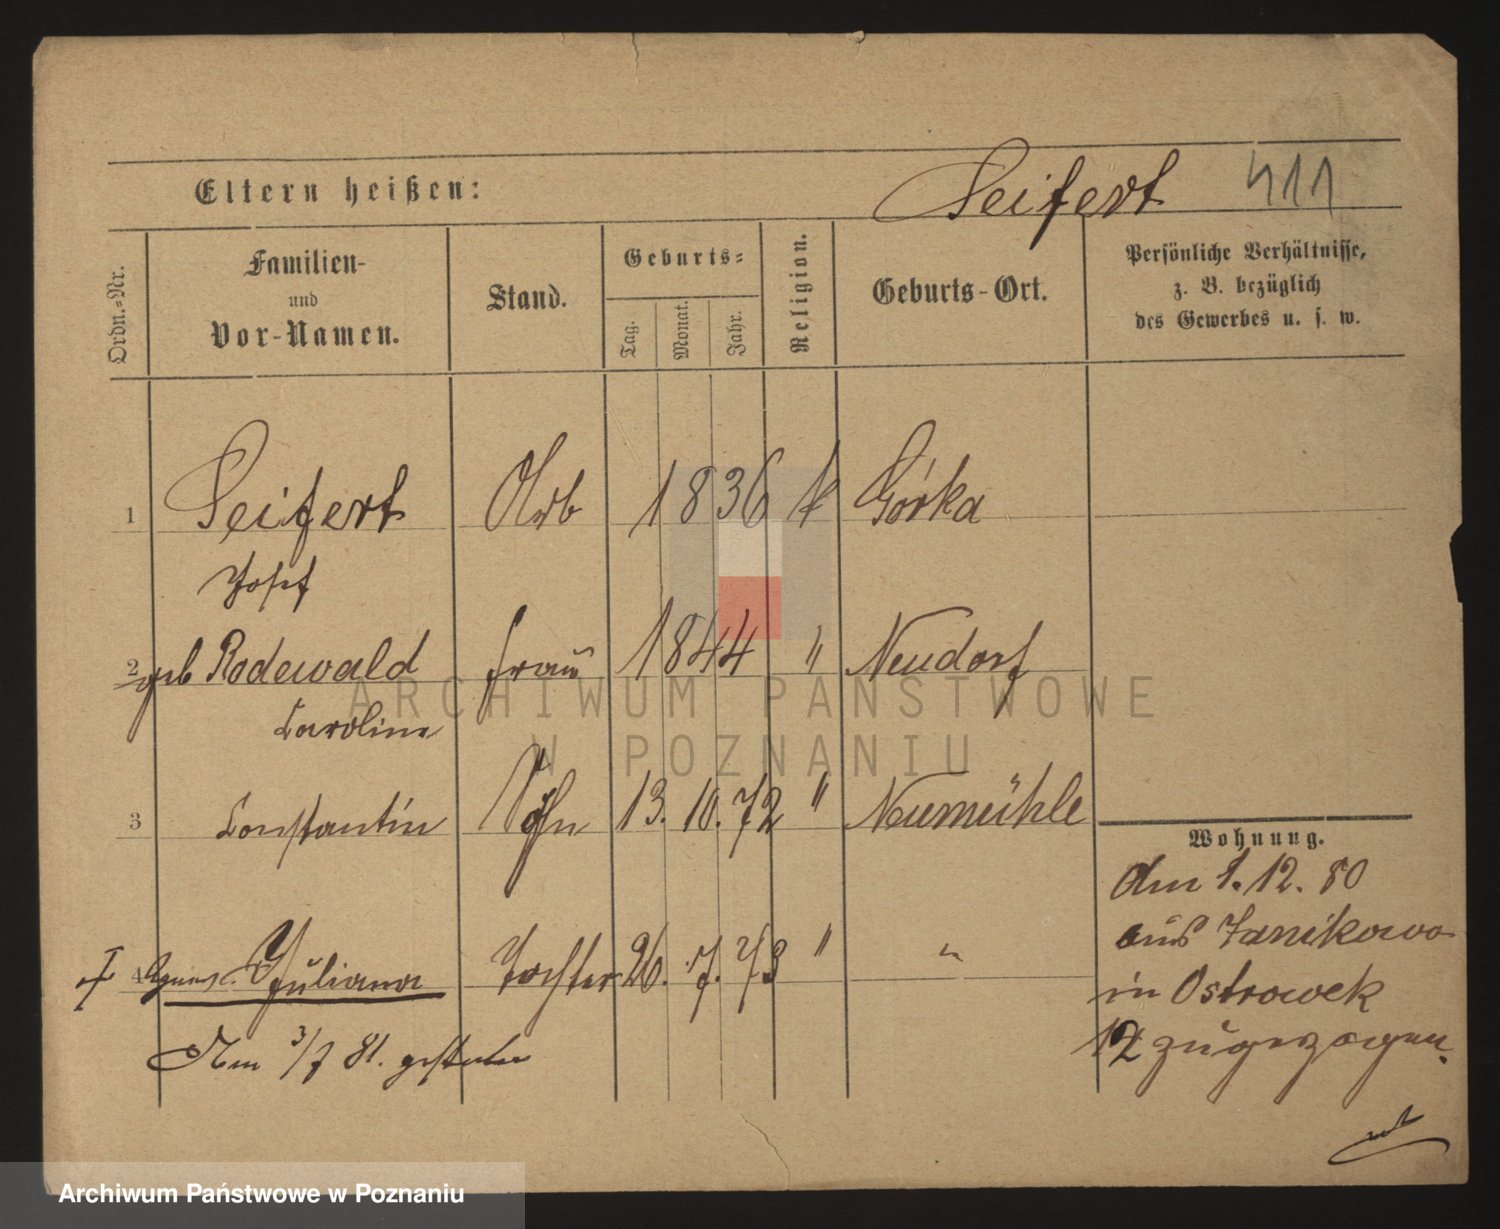 Eltern heißen:
Seifert 411
Ordn.-Nr.
Familien-
und
Vor-Namen.
Stand.
Geburts-
Tag.
Monat.
Jahr.
Religion.
Geburts-Ort.
Persönliche Verhältnisse,
z. B. bezüglich
des Gewerbes u. s. w.
1 Seifert Arb 1836 k Górka
Josef
2 geb Rodewald Frau 1844 " Neudorf
Caroline
3 Constantin Sohn 13. 10. 72 " Neumühle
4 Juliana Tochter 26. 7. 73 " "
Am 3/7 81. gestorben
Wohnung.
den 1. 12. 80
aus Janikowo
in Ostrowek
12 zugezogen.
ARCHIWUM PAŃSTWOWE
W POZNANIU
Archiwum Państwowe w Poznaniu